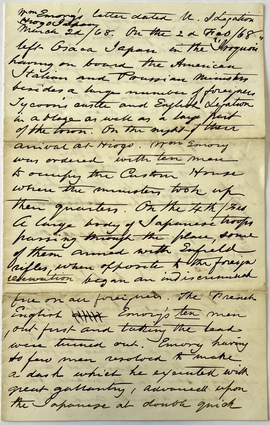 Wm Emory's letter dated U. S Legation
Hiogo Japan
March 2d/68. On the 2d Feb/68
left Osaca Japan in the "Iroquois"
having on board the American
Italian and Prussian Ministers
besides a large number of foreigners
Tycoon's castle and English Legation
in a blaze as well as a large part
of the town. On the night of their
arrival at Hiogo. Wm Emory
was ordered with ten men
to occupy the Custom House
where the ministers took up
their quarters. On the 4th
A large body of Japanese troops
passing through the place some
of them armed with Enfield
rifles, when opposite to the foreign
began an indiscriminate
fire on all foreigners. The French
English Emory's ten men,
out first and taking the lead
were turned out. Emory having
so few men resolved to make
a dash which he executed with
great gallantry, advanced upon
the Japanese at double quick